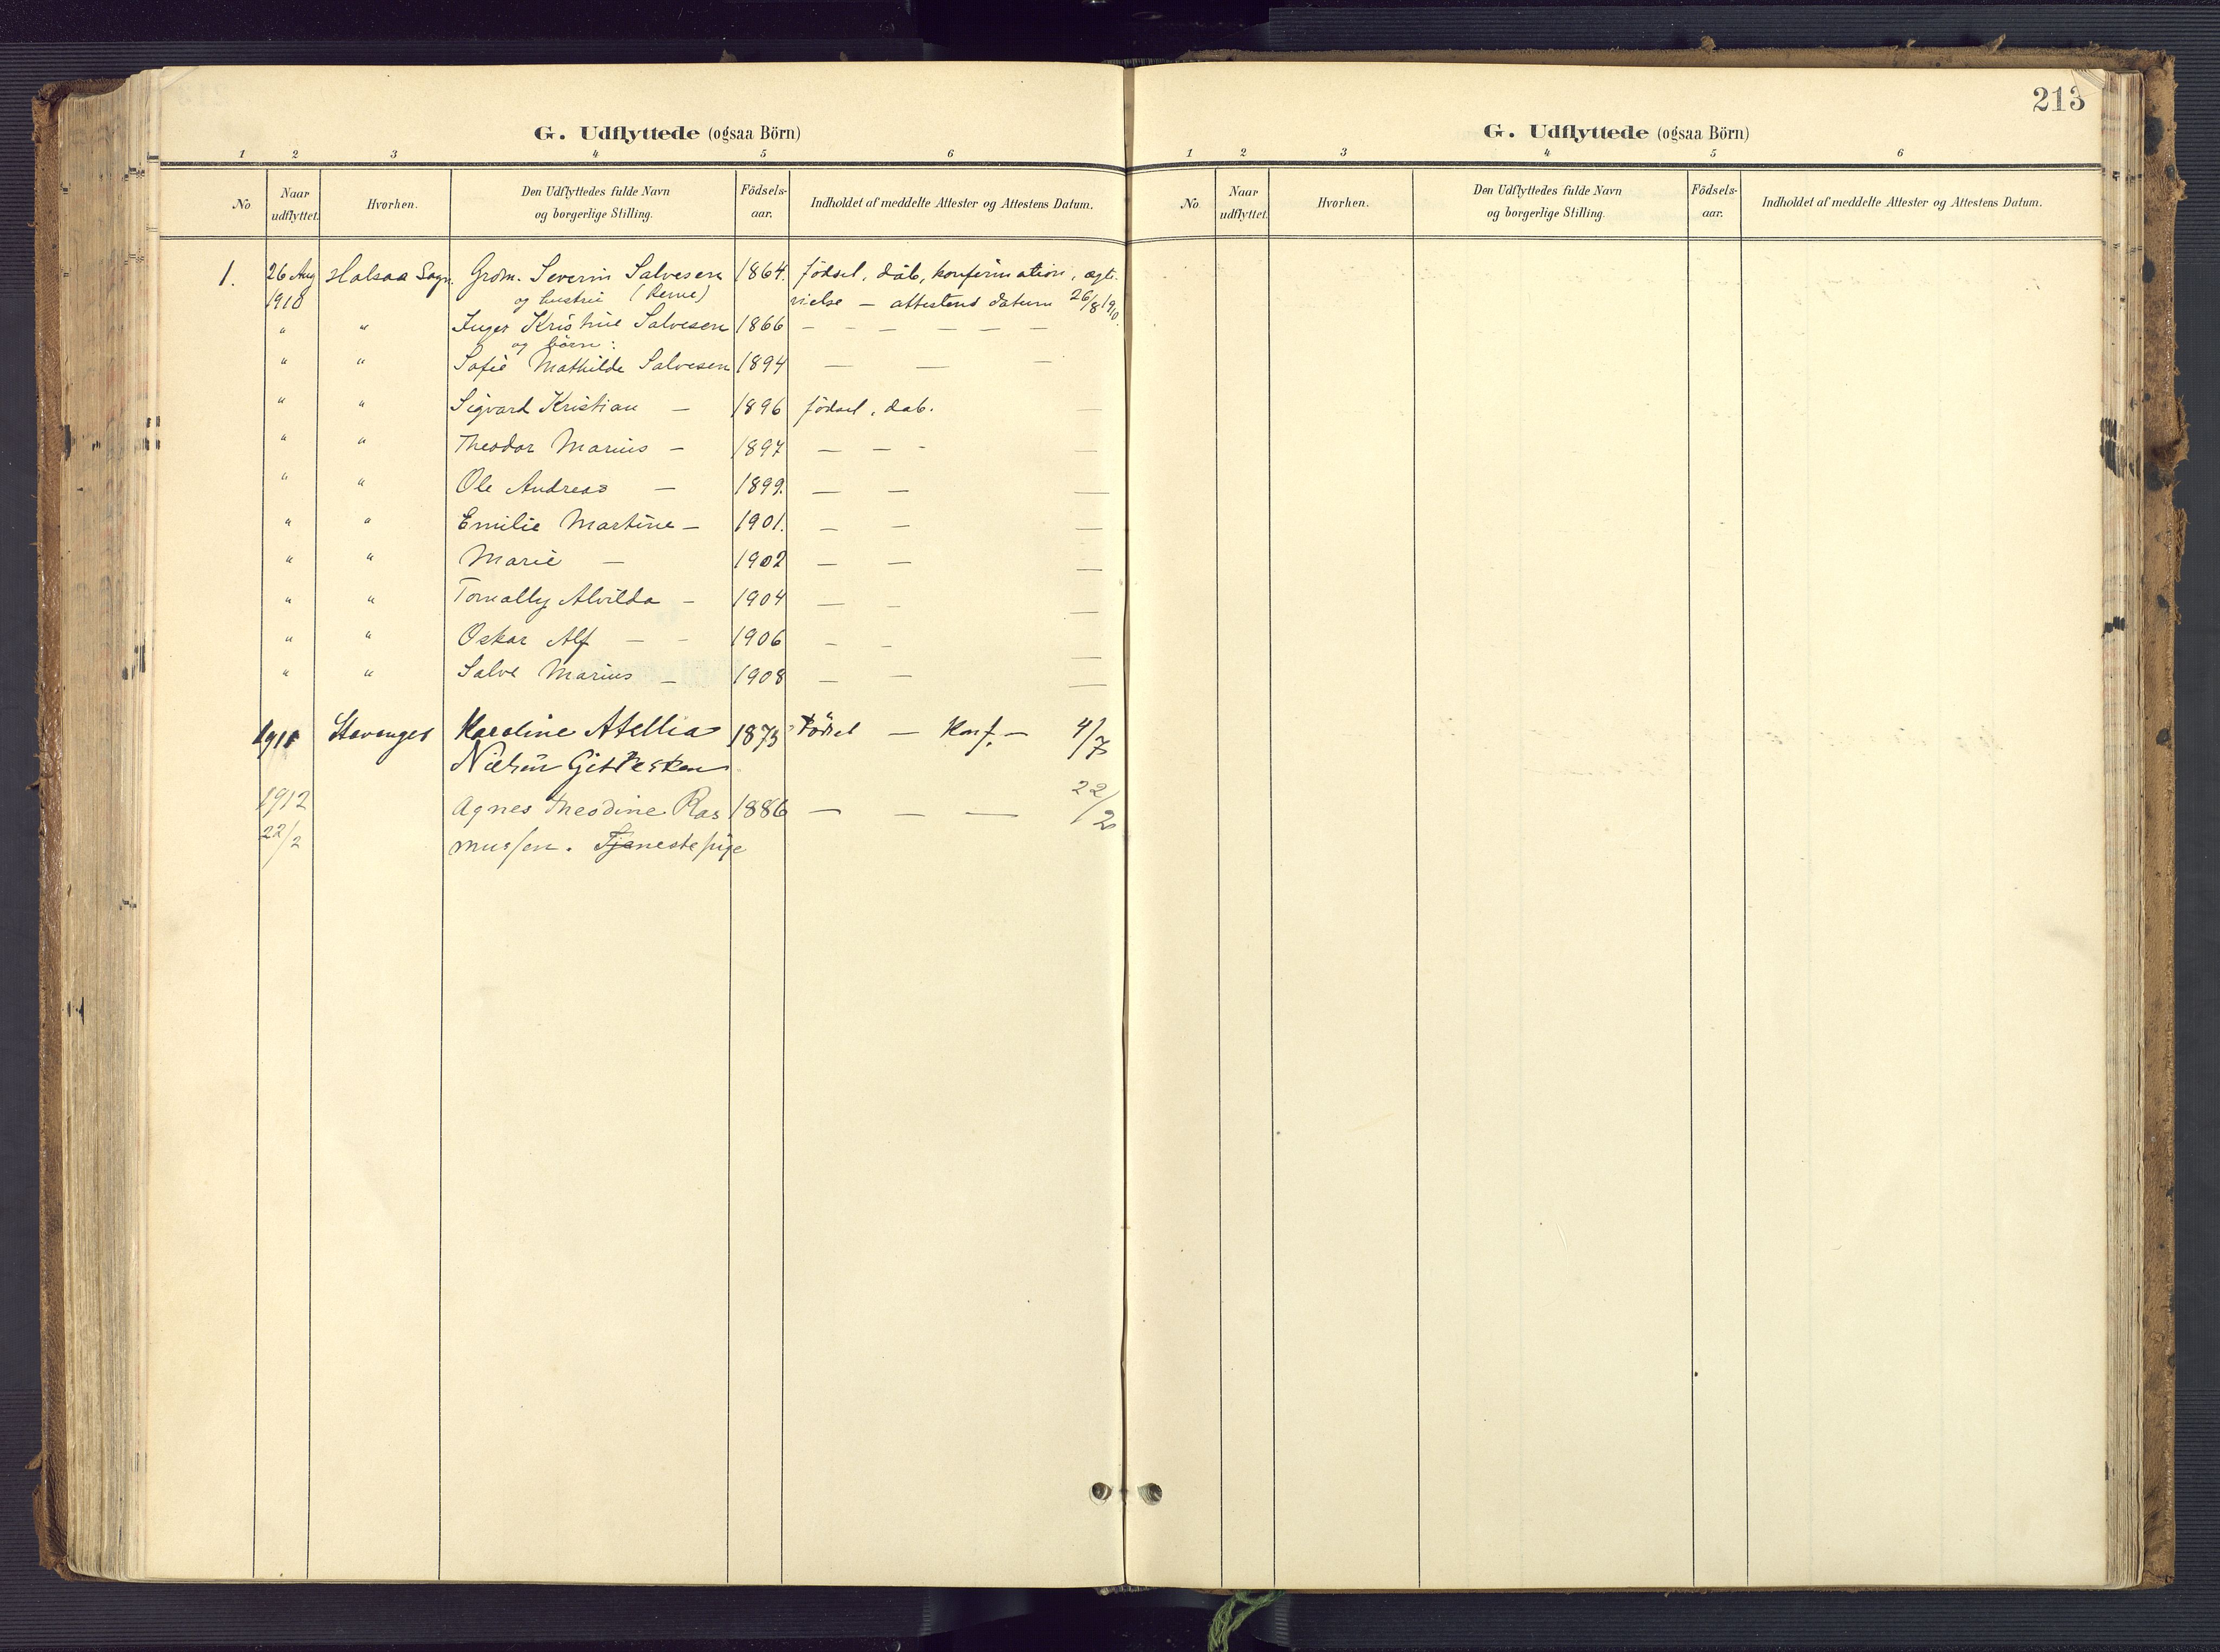 G. Udflyttede (ogsaa Börn)
1 2 3 4 5 6
No Naar udflyttet. Hvorhen. Den Udflyttedes fulde Navn og borgerlige Stilling. Födsels-aar. Indholdet af meddelte Attester og Attestens Datum.
1. 26 Aug Halsaa Sogn. Grdm. Severin Salvesen 1864. födsel, dåb, konfirmation, ægte-
1910 og hustru vielse – attestens datum 26/8 1910.
" " Inger Kristine Salvesen 1866 – – – – – –
og börn:
" " Sofie Mathilde Salvesen 1894 – – –
" " Sigvard Kristian – 1896 födsel, dab. –
" " Theodor Marius – 1897 – – - –
" " Ole Andreas – 1899. – – –
" " Emilie Martine – 1901. – – –
" " Marie – 1902 – – –
" " Tomally Alvilda – 1904 – – –
" " Oskar Alf – - 1906 – – –
" " Salve Marius – 1908 – – –
1911 Stavanger Karoline Atellia 1873 Födsel – Konf. – 4/7
Nielsen
1912 Agnes Theodine Ras 1886 – – – 22/2
22/2 mussen. Tjenestepige
213
G. Udflyttede (ogsaa Börn)
1 2 3 4 5 6
No. Naar udflyttet. Hvorhen. Den Udflyttedes fulde Navn og borgerlige Stilling. Födsels-aar. Indholdet af meddelte Attester og Attestens Datum.